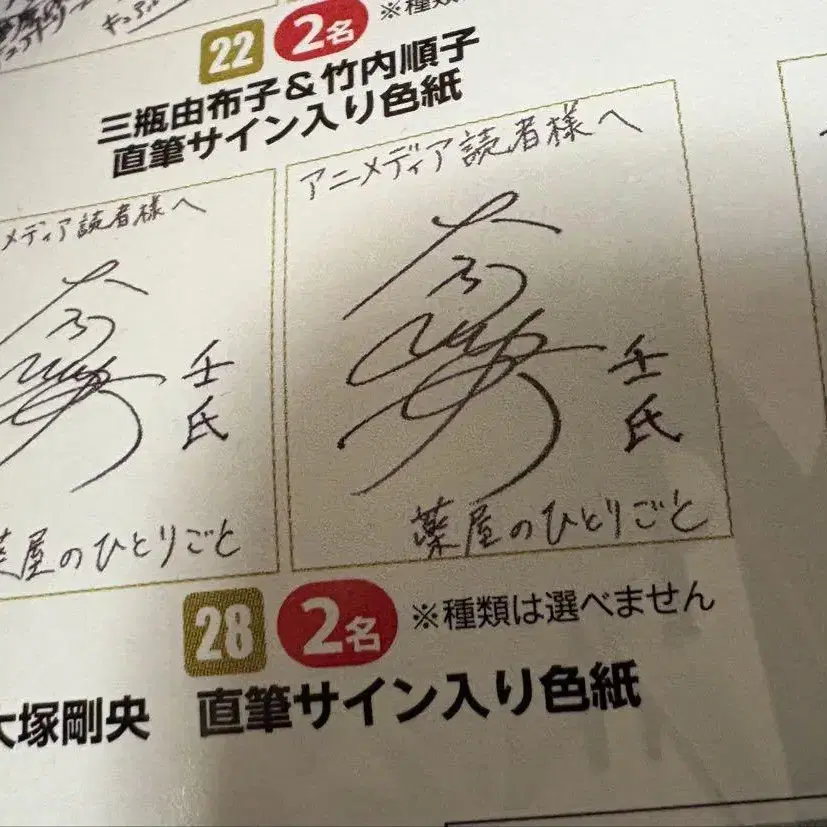 22 2名 ※種類
三瓶由布子&竹内順子
直筆サイン入り色紙
メディア読者様へ
壬氏
薬屋のひとりごと
アニメディア読者様へ
壬氏
薬屋のひとりごと
28 2名 ※種類は選べません
大塚剛央 直筆サイン入り色紙